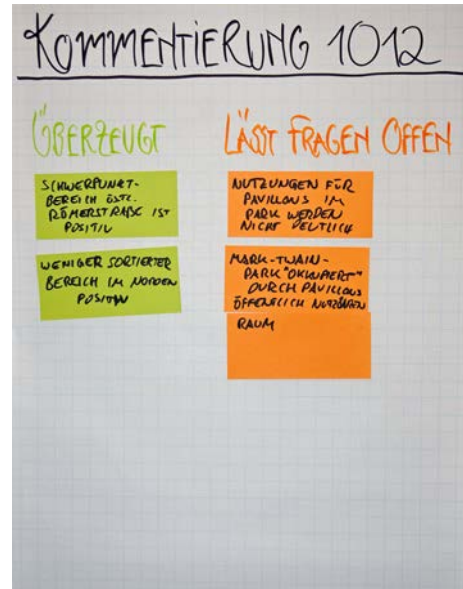 KOMMENTIERUNG 1012
ÜBERZEUGT
SCHWERPUNKT-
BEREICH ÖSTL.
RÖMERSTRAßE IST
POSITIV
WENIGER SORTIERTER
BEREICH IM NORDEN
POSITIV
LÄSST FRAGEN OFFEN
NUTZUNGEN FÜR
PAVILLONS IM
PARK WERDEN
NICHT DEUTLICH
MARK-TWAIN-
PARK "OKKUPIERT"
DURCH PAVILLONS
ÖFFENTLICH NUTZBAREN
RAUM